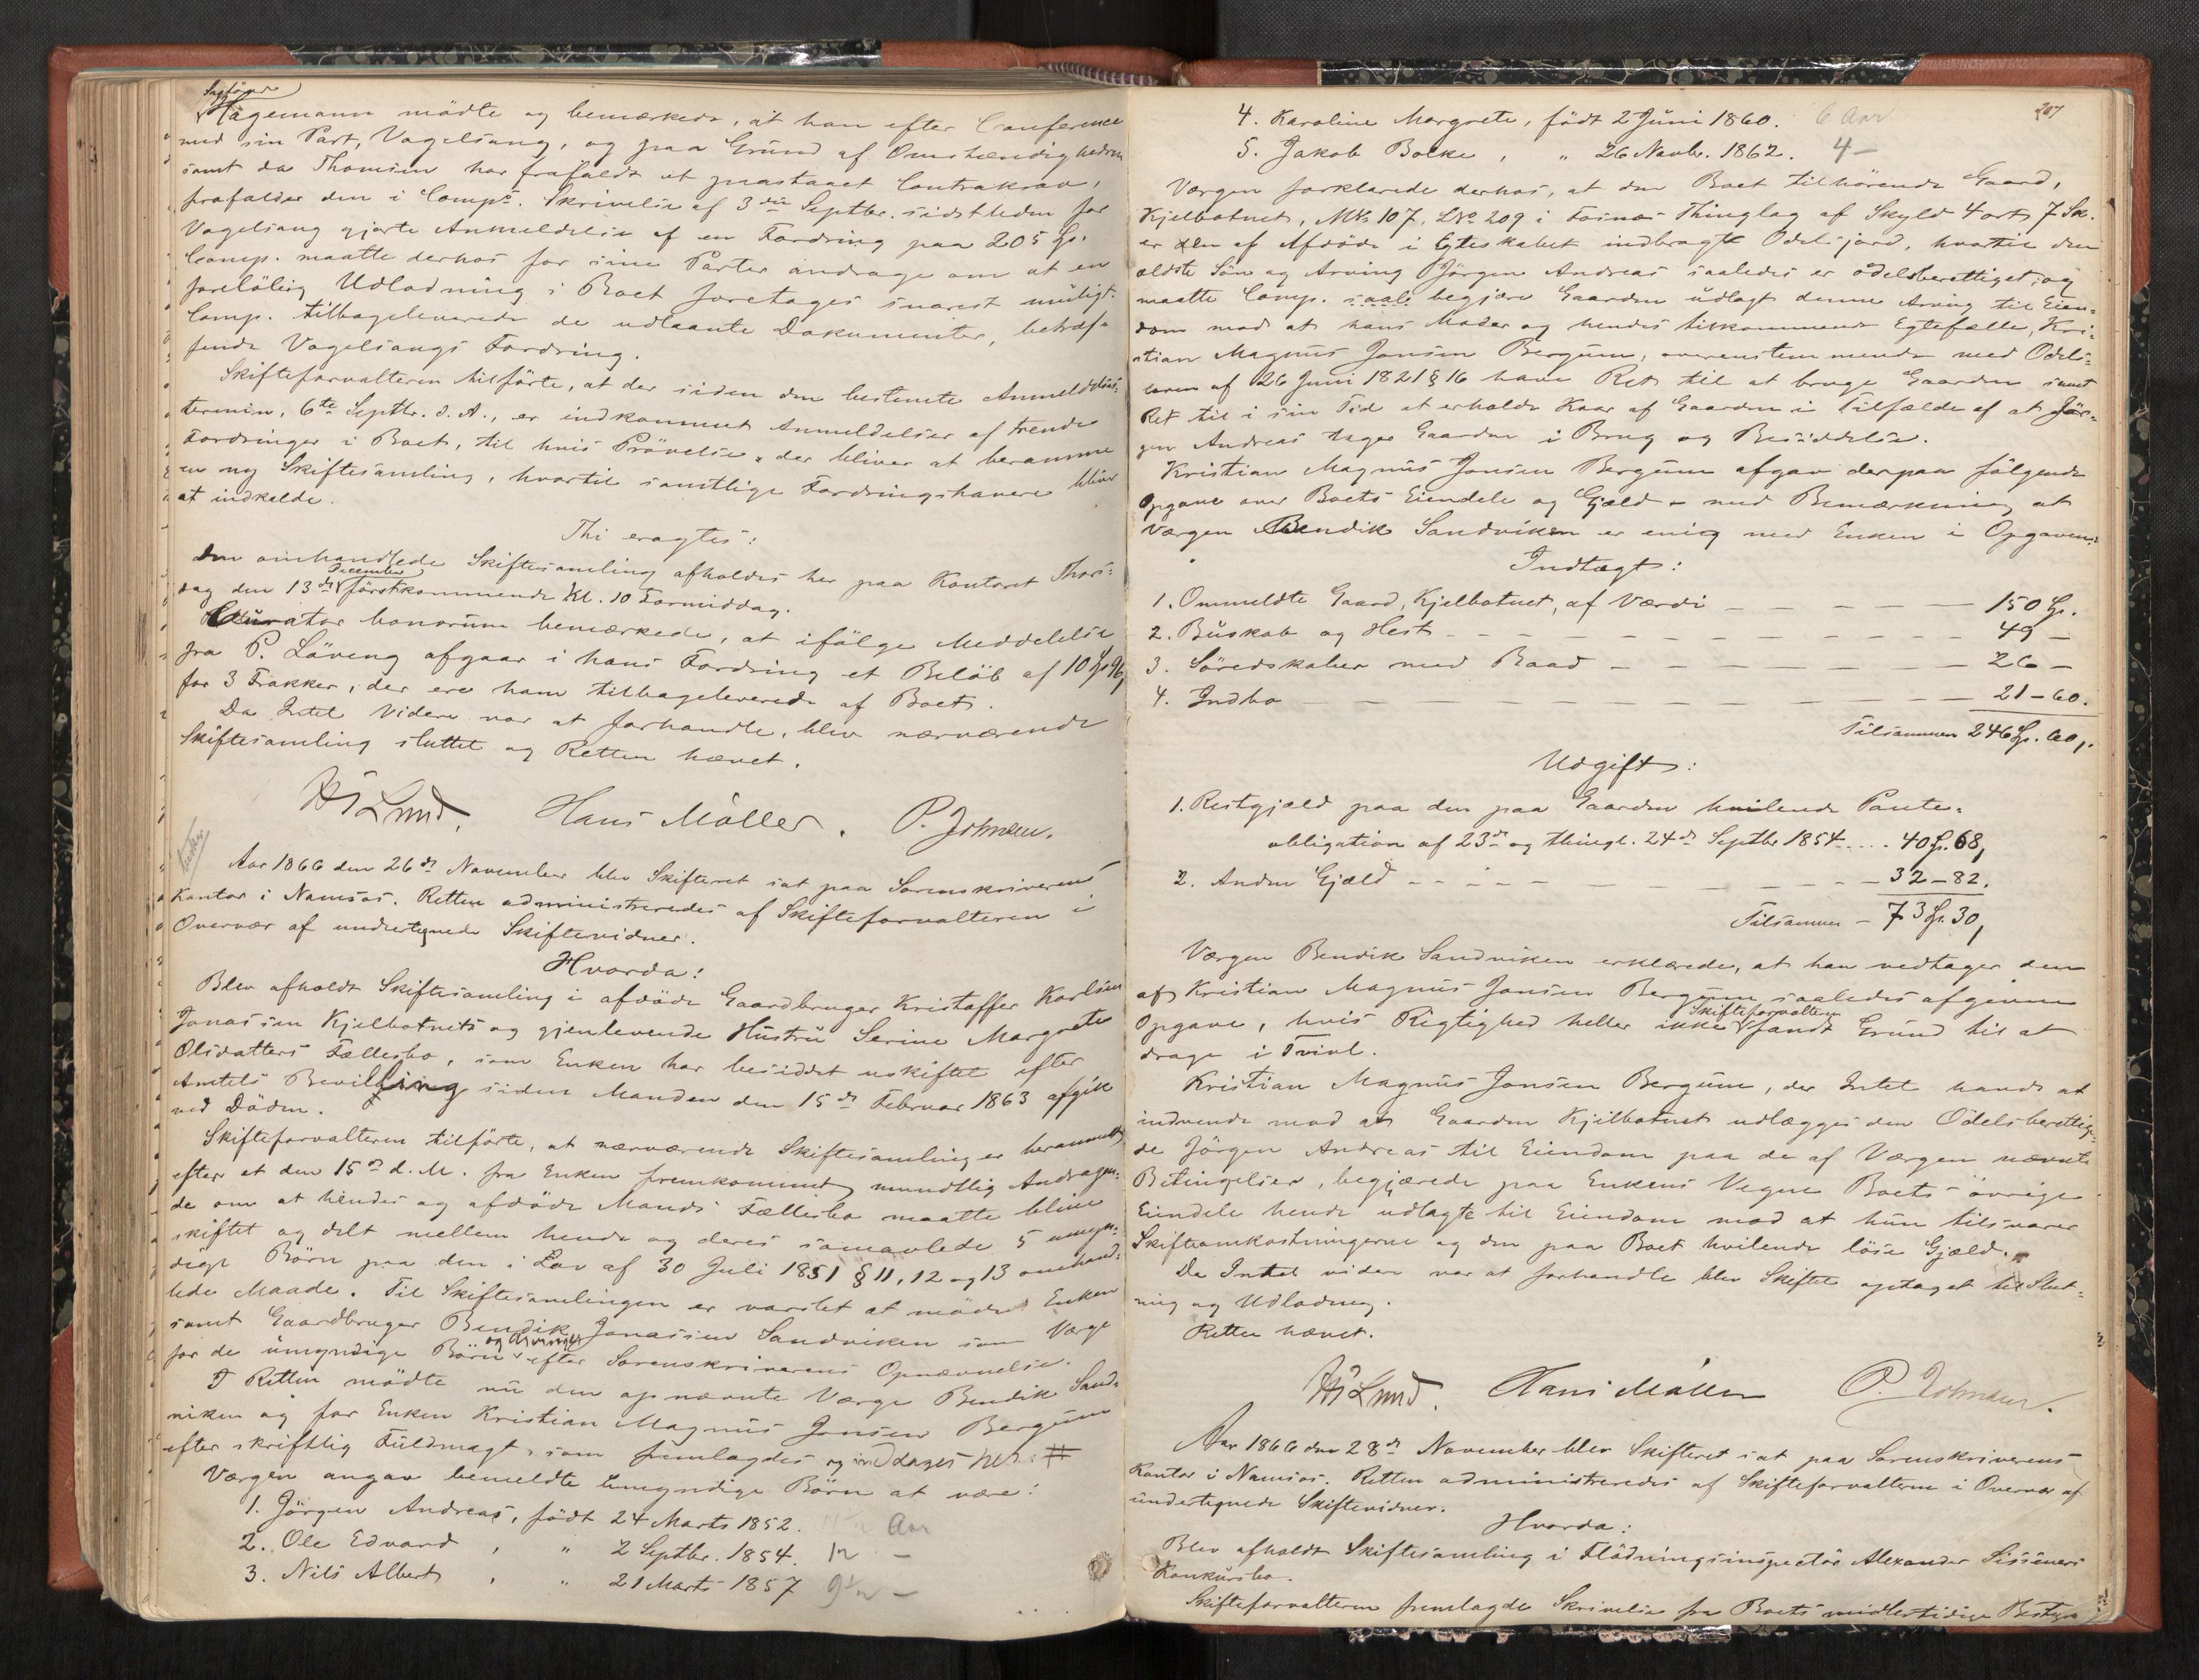 Sagfører
Hagemann mödte og bemærkede, at han efter Conference
med sin Part, Vogelsang, og paa Grund af Omstændighederne
samt da Thomsen har frafaldt et paastaaet Contrakrav,
frafalder den i Comps. Skrivelse af 3die Septbr. sidstleden for
Vogelsang gjorte Anmeldelse af en Fordring paa 205 Spd.
Comp. maatte derhos for sine Parter andrage om at en
foreløbig Udlodning i Boet foretages snarest muligt.
Comp. tilbageleverede de udlaante Dokumenter, betræf-
fende Vogelsangs Fordring.
Skifteforvalteren tilførte, at der siden den bestemte Anmeldelses-
termin, 6te Septbr. d. A., er indkommet Anmeldelser af trende
Fordringer i Boet, til hvis Prøvelse der bliver at beramme
en ny Skiftesamling, hvortil samtlige Fordringshavere bliver
at indkalde.
Thi eragtes:
Den omhandlede Skiftesamling afholdes her paa Kontoret Thors-
dag den 13de December förstkommende Kl. 10 Formiddag.
Curator bonorum bemærkede, at ifølge Meddelelse
fra P. Löveng afgaar i hans Fordring et Beløb af 10 Spd 96
for 3 Frakker, der ere ham tilbageleverede af Boet.
Da Intet videre var at forhandle, blev nærværende
Skiftesamling sluttet og Retten hævet.
Lund. Hans Møller. P. Johnsen.
Aar 1866 den 26de November blev Skifteret sat paa Sorenskriverens
Kontor i Namsos. Retten administreredes af Skifteforvalteren i
Overvær af undertegnede Skiftevidner.
Hvorda:
Blev afholdt Skiftesamling i afdøde Gaardbruger Kristoffer Karlsen
Jonassen Kjelbotnets og gjenlevende Hustru Serine Margrete
Olsdatters Fællesbo, som Enken har besiddet uskiftet efter
Amtets Bevilling siden Manden den 15de Februar 1863 afgik
ved Døden.
Skifteforvalteren tilførte, at nærværende Skiftesamling er berammet
efter et den 15de d. M. fra Enken fremkommet mundtlig Andragen-
de om at hendes og afdøde Mands Fællesbo maatte blive
skiftet og delt mellem hende og deres sammavlede 5 umyn-
dige Børn paa den i Lov af 30 Juli 1851 § 11, 12 og 13 omhand-
lede Maade. Til Skiftesamlingen er varslet at møde Enken
samt Gaardbruger Bendik Jonassen Sandviken som Værge
for de umyndige Børn og Arvinger efter Sorenskriverens Opnævnelse.
I Retten mødte nu den opnævnte Værge Bendik Sand-
viken og for Enken Kristian Magnus Jonsen Bergum
efter skriftlig Fuldmagt, som fremlagdes og inddages her: #
Værgen angav bemeldte Umyndige Børn at være:
1. Jörgen Andreas, født 24 Marts 1852. Aar
2. Ole Edvard , " 2 Septbr. 1854. 12 -
3. Nils Albert , " 21 Marts 1857 9½ -
207
4. Karoline Margrete, født 2 Juni 1860. 6 Aar
5. Jakob Bolke , " 26 Novbr. 1862. 4 -
Værgen forklarede derhos, at den Boet tilhørende Gaard,
Kjelbotnet, MNo 107, LNo 209 i Fosnæs Thinglag af Skyld 4 ort 7 Sk.
er den af Afdøde i Egteskabet indbragte Odelsjord, hvortil den
ældste Søn og Arving Jörgen Andreas saaledes er odelsberettiget, og
maatte Comp. begjære Gaarden udlagt denne Arving til Eien-
dom mod at hans Moder og hendes tilkommende Egtefælle, Kri-
stian Magnus Jonsen Bergum, overenstemmende med Odels-
loven af 26 Juni 1821 § 16 have Ret til at bruge Gaarden samt
Ret til i sin Tid at erholde Kaar af Gaarden i Tilfælde af at Jör-
gen Andreas tager Gaarden i Brug og Besiddelse.
Kristian Magnus Jonsen Bergum afgav derpaa følgende
Opgave over Boets Eiendele og Gjæld - med Bemærkning at
Værgen Bendik Sandviken er enig med Enken i Opgaven:
Indtægt:
1. Ommeldte Gaard, Kjelbotnet, af Værdi - - - - 150 Spd.
2. Buskab og Hest - - - - - - - 49 -
3. Søredskaber med Baad - - - - - - 26 -
4. Indbo - - - - - - - - 21 - 60.
Tilsammen 246 Spd. 60,
Udgift:
1. Restgjæld paa den paa Gaarden hvilende Pante-
obligation af 23de og thingl. 24de Septbr 1854 .... 40 Spd. 68,
2. Anden Gjæld - - - - - - - - 32 - 82.
Tilsammen - 73 Spd. 30,
Værgen Bendik Sandviken erklærede, at han vedtager den
af Kristian Magnus Jonsen Bergum saaledes afgivne
Opgave, hvis Rigtighed heller ikke Skifteforvalteren fandt Grund til at
drage i Tvivl.
Kristian Magnus Jonsen Bergum, der Intet havde at
indvende mod at Gaarden Kjelbotnet udlægges den Odelsberettige-
de Jörgen Andreas til Eiendom paa de af Værgen nævnte
Betingelser, begjærede paa Enkens Vegne Boets øvrige
Eiendele hende udlagte til Eiendom mod at hun tilsvarer
Skifteomkostningerne og den paa Boet hvilende løse Gjæld.
Da Intet videre var at forhandle blev Skiftet optaget til Slut-
ning og Udlodning.
Retten hævet.
Lund. Hans Møller P. Johnsen.
Aar 1866 den 28de November blev Skifteret sat paa Sorenskriverens
Kontor i Namsos. Retten administreredes af Skifteforvalteren i Overvær af
undertegnede Skiftevidner.
Hvorda:
Blev afholdt Skiftesamling i Flödningsinspectør Alexander Sisseners
Konkursbo.
Skifteforvalteren fremlagde Skrivelse fra Boets midlertidige Bestyrer